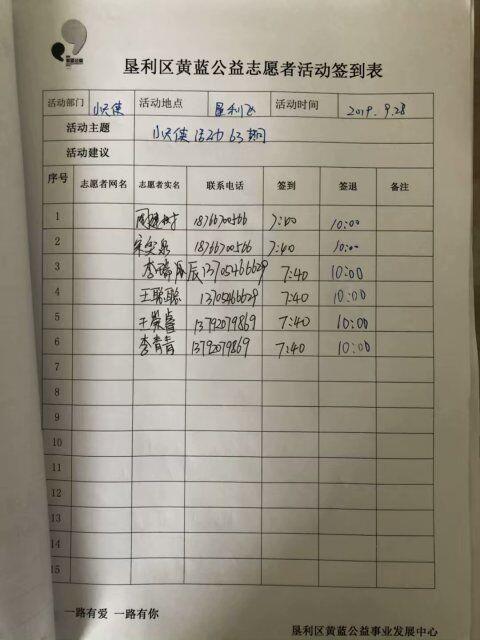 黄蓝公益
垦利区黄蓝公益志愿者活动签到表
活动部门 小天使 活动地点 垦利区 活动时间 2019.9.28
活动主题 小天使活动63期
活动建议
序号 志愿者网名 志愿者实名 联系电话 签到 签退 备注
1 18766700566 7:40 10:00
2 18766700566 7:40 10:00
3 李瑞辰 13705466629 7:40 10:00
4 王聪聪 13705466629 7:40 10:00
5 王荣睿 13792079869 7:40 10:00
6 李青青 13792079869 7:40 10:00
7
8
9
10
11
12
13
14
15
一路有爱 一路有你
垦利区黄蓝公益事业发展中心